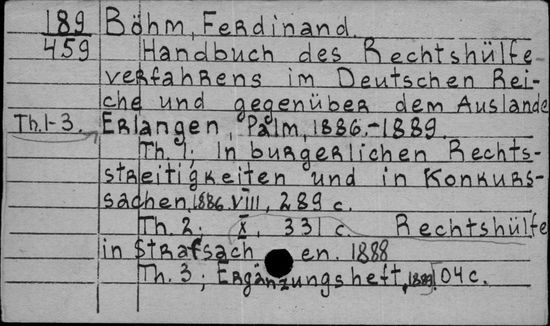 189 Böhm, Ferdinand.
459 Handbuch des Rechtshülfe-
verfahrens im Deutschen Rei-
che und gegenüber dem Auslande
Th. 1-3. Erlangen, Palm, 1886.-1889.
Th. 1; In burgerlichen Rechts-
streitigkeiten und in Konkurs-
sachen. 1886. VIII, 289 c.
Th. 2; X, 331 c. Rechtshülfe
in Strafsachen. 1888
Th. 3; Ergänzungsheft, 1889. 104 c.